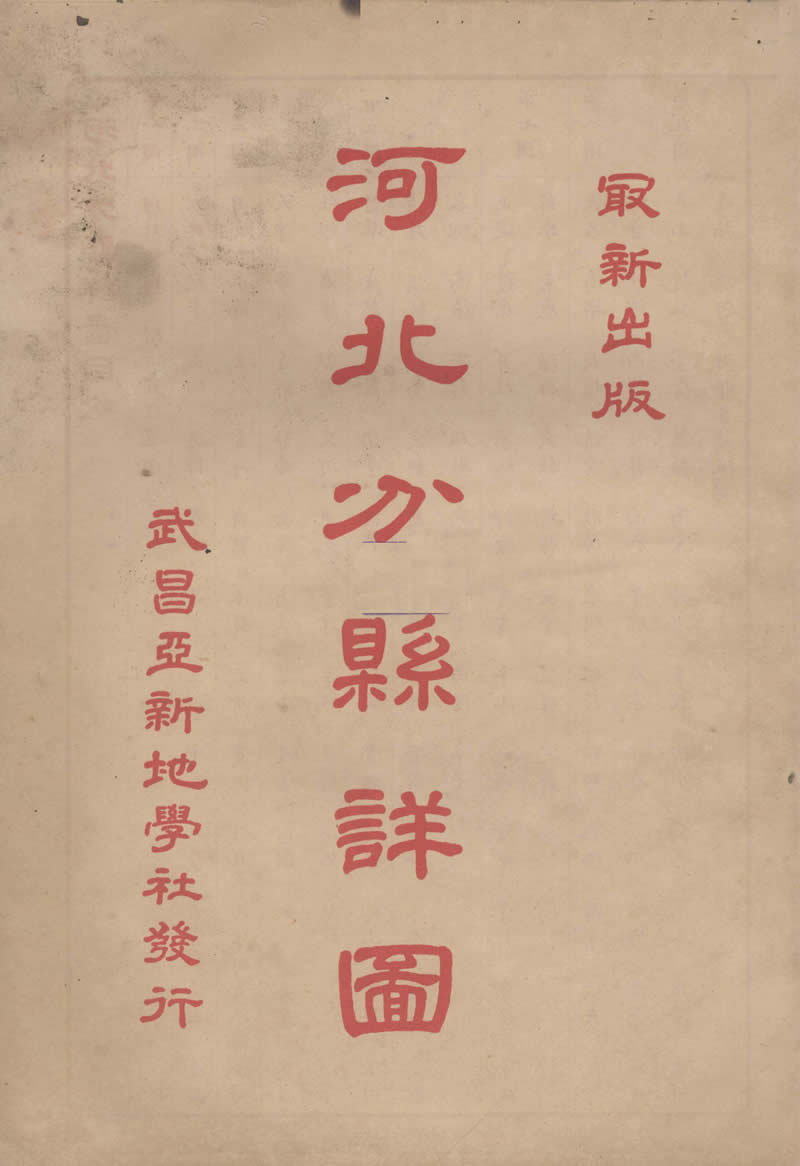 最新出版
河北分縣詳圖
武昌亞新地學社發行